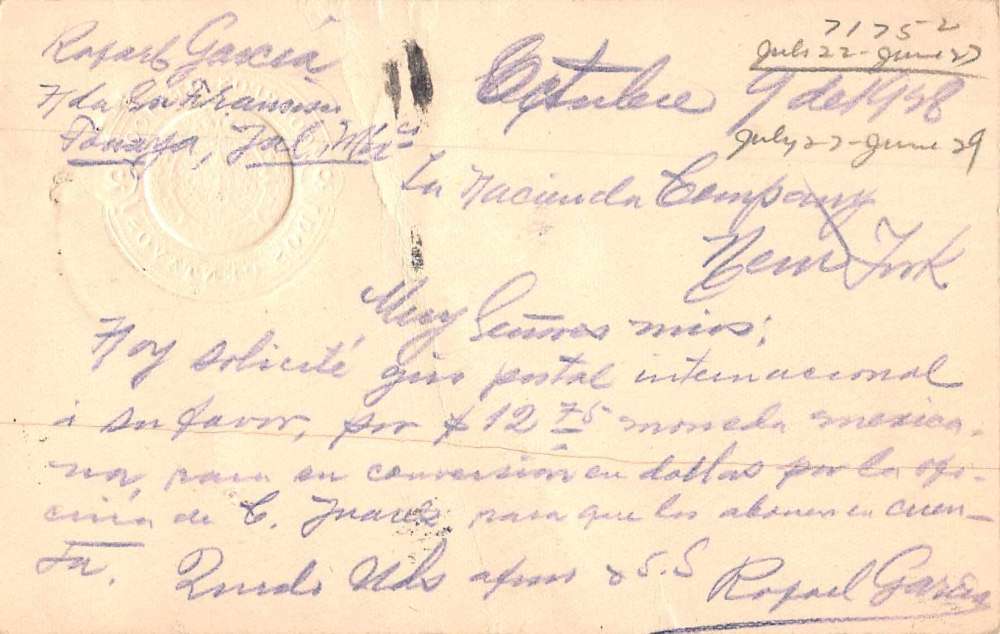 Rafael García
Hda San Francisco
Tonaya, Jal. Méx
71752
July 22 - June 27
Octubre 9 de 1928
July 27 - June 29
La Hacienda Company
New York
Muy Señores mios;
Hoy solicité giro postal internacional
á su favor, por $12 75 moneda mexica-
na, para su conversión en dollas por la ofi-
cina de C. Juarez para que los abonen en cuen-
ta. Quedo Uds afmo y S.S
Rafael García